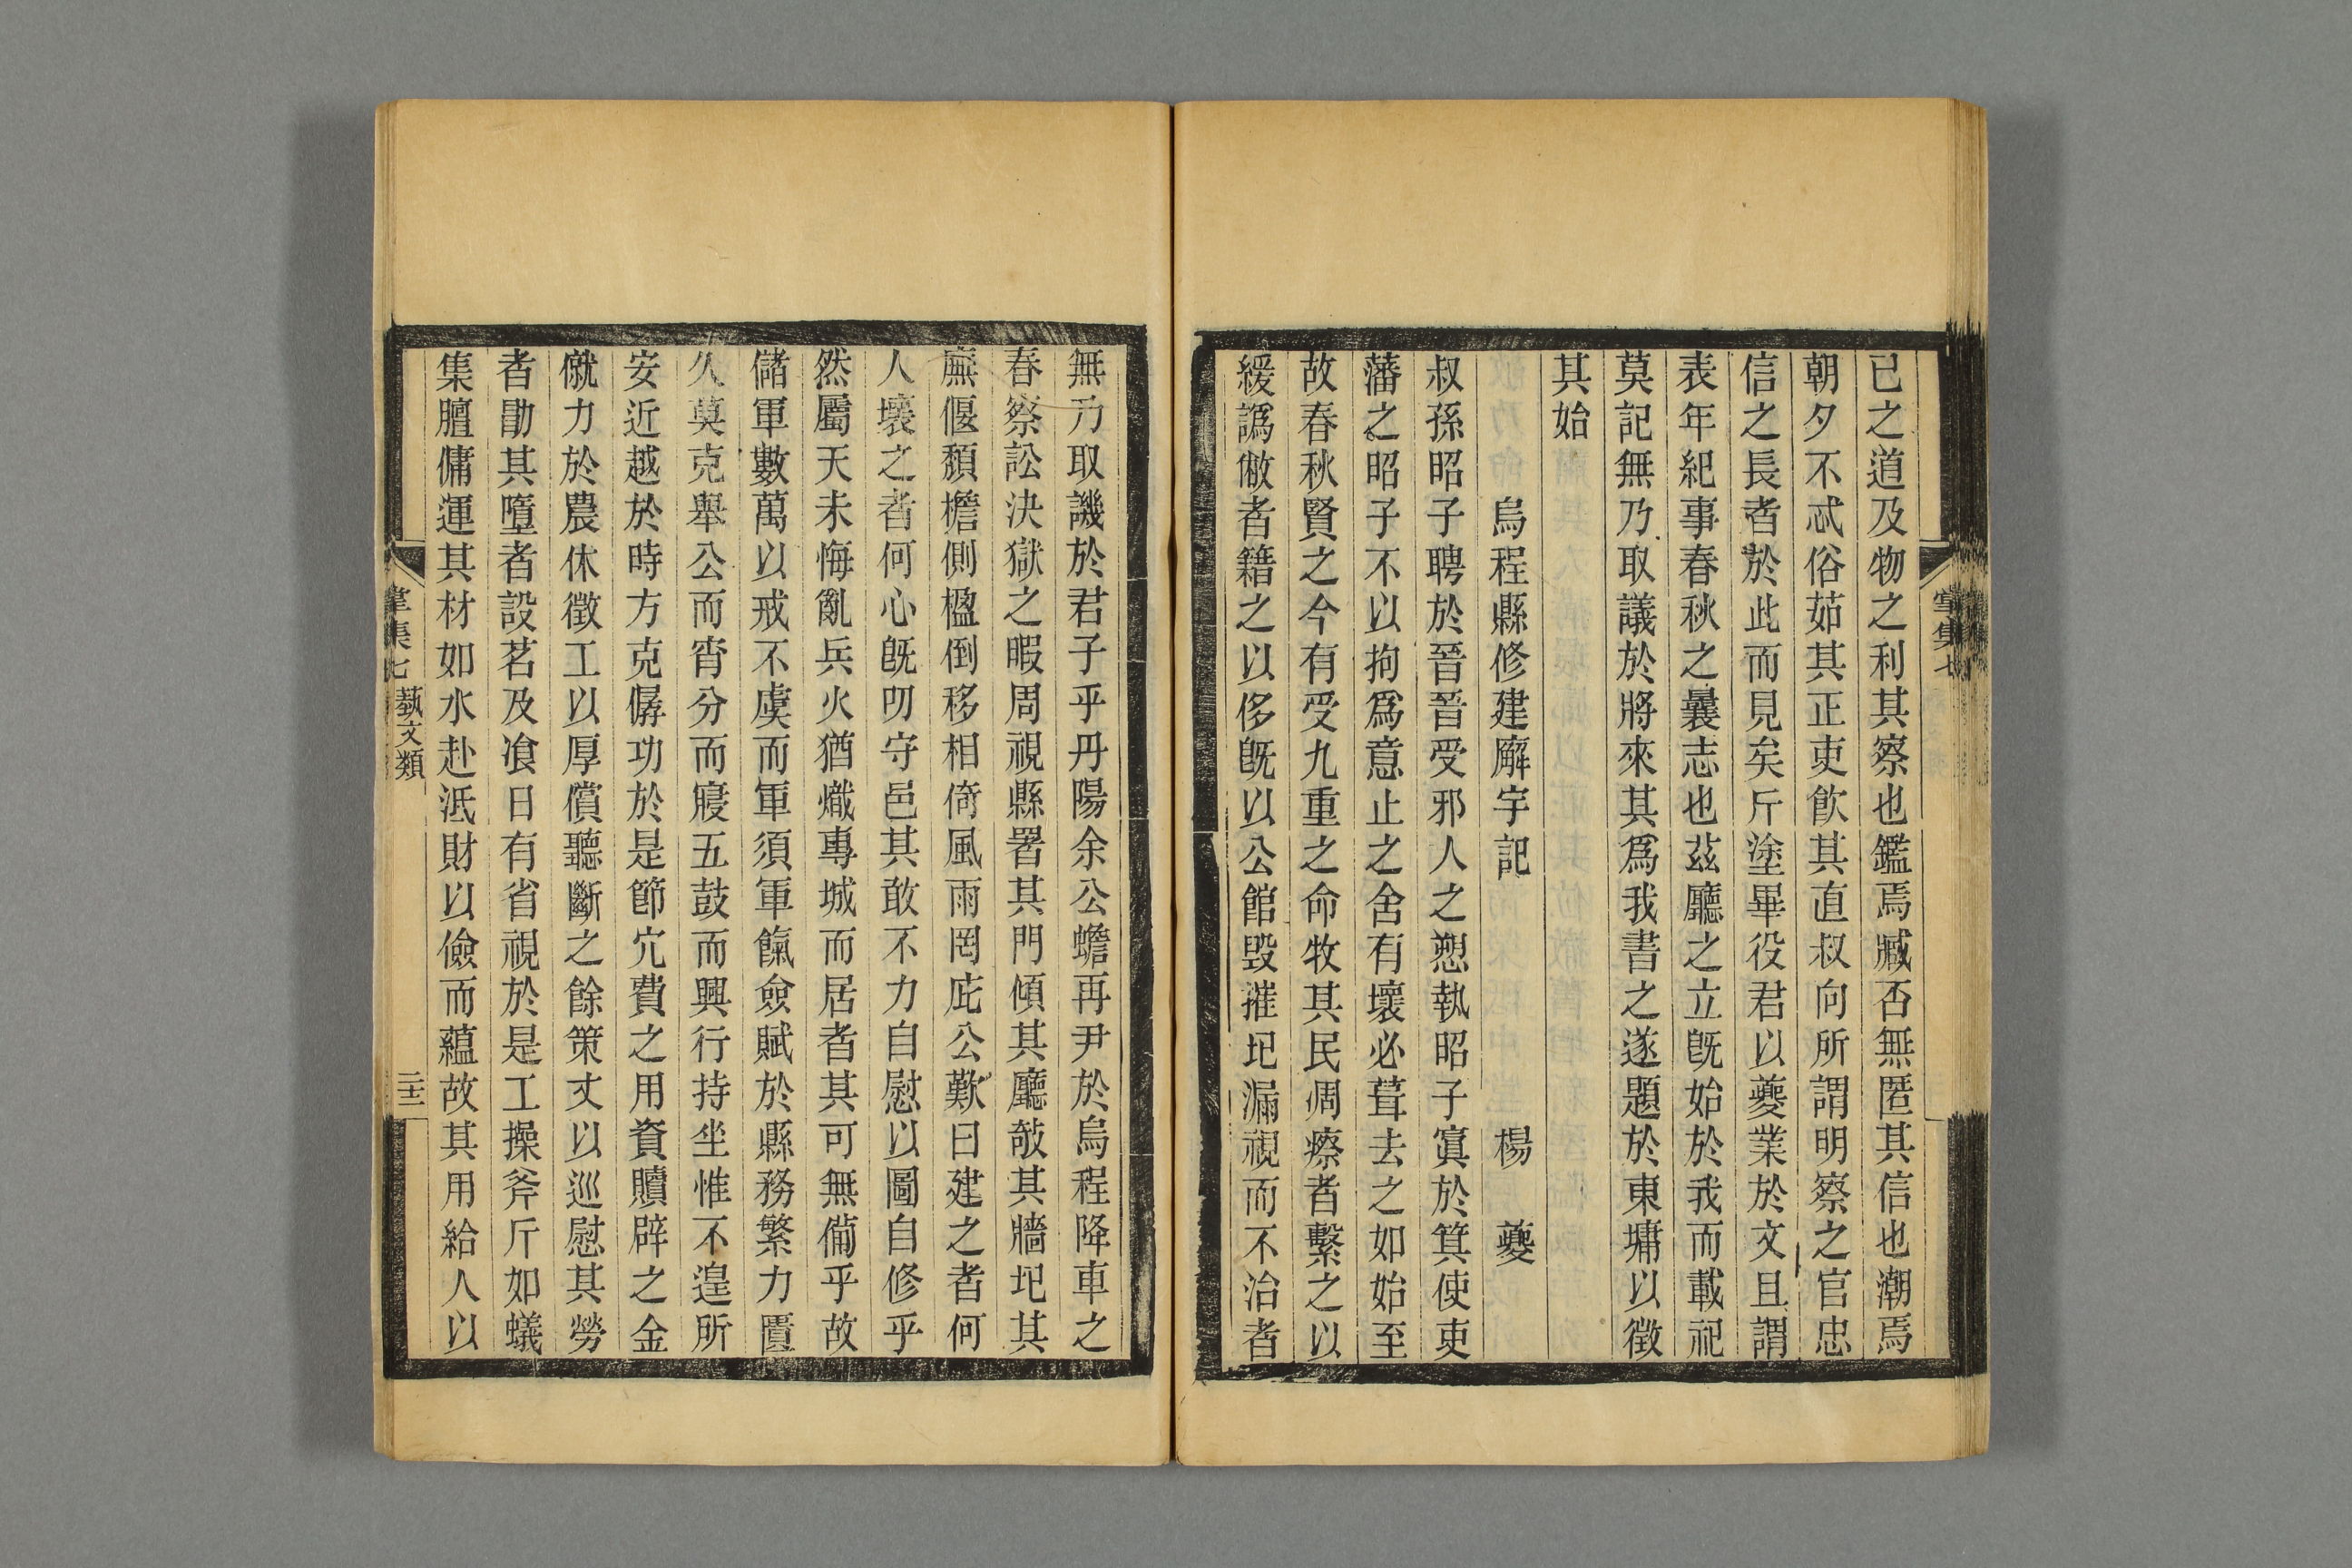 已之道及物之利其察也鑑焉臧否無匿其信也潮焉
朝夕不忒俗茹其正吏飲其直叔向所謂明察之官忠
信之長者於此而見矣斤塗畢役君以夔業於文且謂
表年紀事春秋之曩志也茲廳之立旣始於我而載祀
莫記無乃取議於將來其爲我書之遂題於東墉以徵
其始
烏程縣修建廨宇記 楊 夔
叔孫昭子聘於晉晉受邪人之愬執昭子寘於箕使吏
藩之昭子不以拘爲意止之舍有壞必葺去之如始至
故春秋賢之今有受九重之命牧其民凋瘵者繫之以
緩譌僘者籍之以侈旣以公館毀摧圯漏視而不治者
無乃取譏於君子乎丹陽余公蟾再尹於烏程降車之
春察訟決獄之暇周視縣署其門傾其廳敧其牆圯其
廡偃頹檐側楹倒移相倚風雨罔庇公歎曰建之者何
人壞之者何心旣叨守邑其敢不力自慰以圖自修乎
然屬天未悔亂兵火猶熾專城而居者其可無備乎故
儲軍數萬以戒不虞而軍須軍餼僉賦於縣務繁力匱
久莫克舉公而宵分而寢五鼓而興行持坐惟不遑所
安近越於時方克僝功於是節宂費之用資贖辟之金
僦力於農休徵工以厚償聽斷之餘策杖以巡慰其勞
者勖其墮者設茗及飡日有省視於是工操斧斤如蟻
集膻傭運其材如水赴泜財以儉而蘊故其用給人以
掌集七 藝文類 二十三